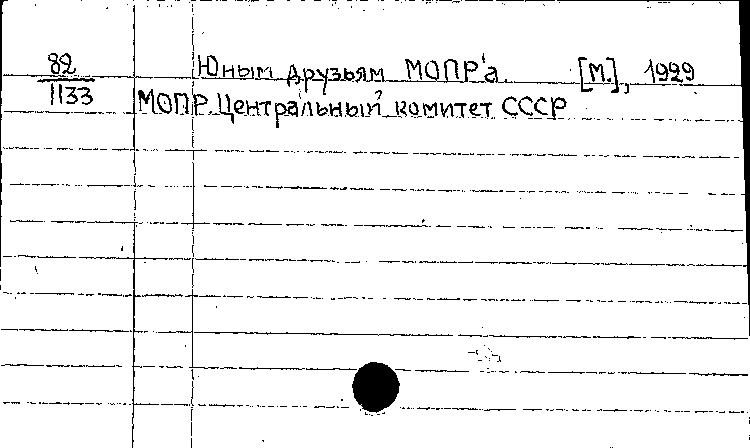 82 Юным друзьям МОПР'а. [М.], 1929
1133 МОПР. Центральный комитет СССР